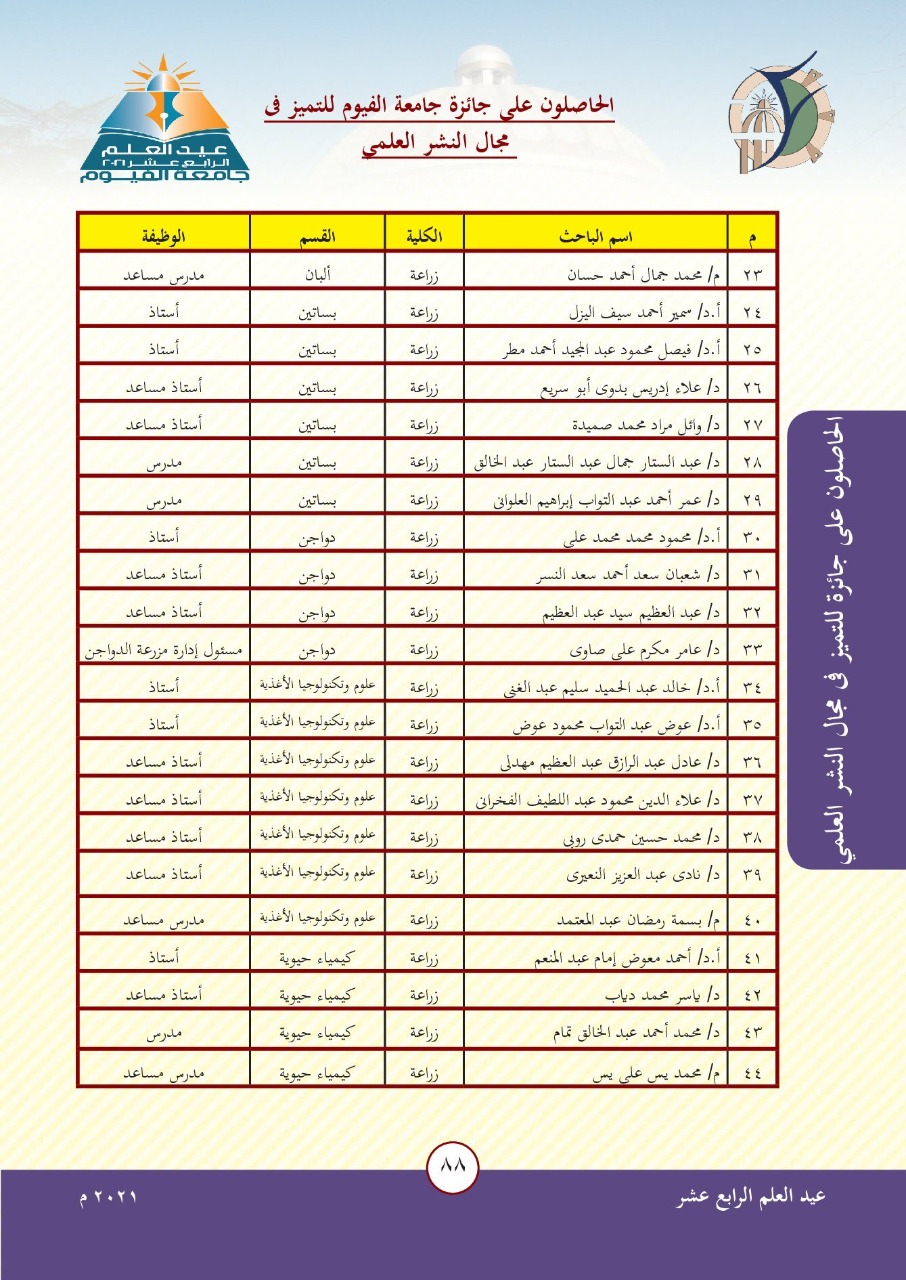 الحاصلون على جائزة جامعة الفيوم للتميز فى
مجال النشر العلمي
عيد العلم
الرابع عشر ٢٠٢١
جامعة الفيوم
م اسم الباحث الكلية القسم الوظيفة
٢٣ م/ محمد جمال أحمد حسان زراعة ألبان مدرس مساعد
٢٤ أ.د/ سمير أحمد سيف اليزل زراعة بساتين أستاذ
٢٥ أ.د/ فيصل محمود عبد المجيد أحمد مطر زراعة بساتين أستاذ
٢٦ د/ علاء إدريس بدوى أبو سريع زراعة بساتين أستاذ مساعد
٢٧ د/ وائل مراد محمد صميدة زراعة بساتين أستاذ مساعد
٢٨ د/ عبد الستار جمال عبد الستار عبد الخالق زراعة بساتين مدرس
٢٩ د/ عمر أحمد عبد التواب إبراهيم العلوانى زراعة بساتين مدرس
٣٠ أ.د/ محمود محمد محمد على زراعة دواجن أستاذ
٣١ د/ شعبان سعد أحمد سعد النسر زراعة دواجن أستاذ مساعد
٣٢ د/ عبد العظيم سيد عبد العظيم زراعة دواجن أستاذ مساعد
٣٣ د/ عامر مكرم على صاوى زراعة دواجن مسئول إدارة مزرعة الدواجن
٣٤ أ.د/ خالد عبد الحميد سليم عبد الغنى زراعة علوم وتكنولوجيا الأغذية أستاذ
٣٥ أ.د/ عوض عبد التواب محمود عوض زراعة علوم وتكنولوجيا الأغذية أستاذ
٣٦ د/ عادل عبد الرازق عبد العظيم مهدلى زراعة علوم وتكنولوجيا الأغذية أستاذ مساعد
٣٧ د/ علاء الدين محمود عبد اللطيف الفخرانى زراعة علوم وتكنولوجيا الأغذية أستاذ مساعد
٣٨ د/ محمد حسين حمدى روبى زراعة علوم وتكنولوجيا الأغذية أستاذ مساعد
٣٩ د/ نادى عبد العزيز النعيرى زراعة علوم وتكنولوجيا الأغذية أستاذ مساعد
٤٠ م/ بسمة رمضان عبد المعتمد زراعة علوم وتكنولوجيا الأغذية مدرس مساعد
٤١ أ.د/ أحمد معوض إمام عبد المنعم زراعة كيمياء حيوية أستاذ
٤٢ د/ ياسر محمد دياب زراعة كيمياء حيوية أستاذ مساعد
٤٣ د/ محمد أحمد عبد الخالق تمام زراعة كيمياء حيوية مدرس
٤٤ م/ محمد يس على يس زراعة كيمياء حيوية مدرس مساعد
الحاصلون على جائزة للتميز فى مجال النشر العلمي
٨٨
عيد العلم الرابع عشر
٢٠٢١ م